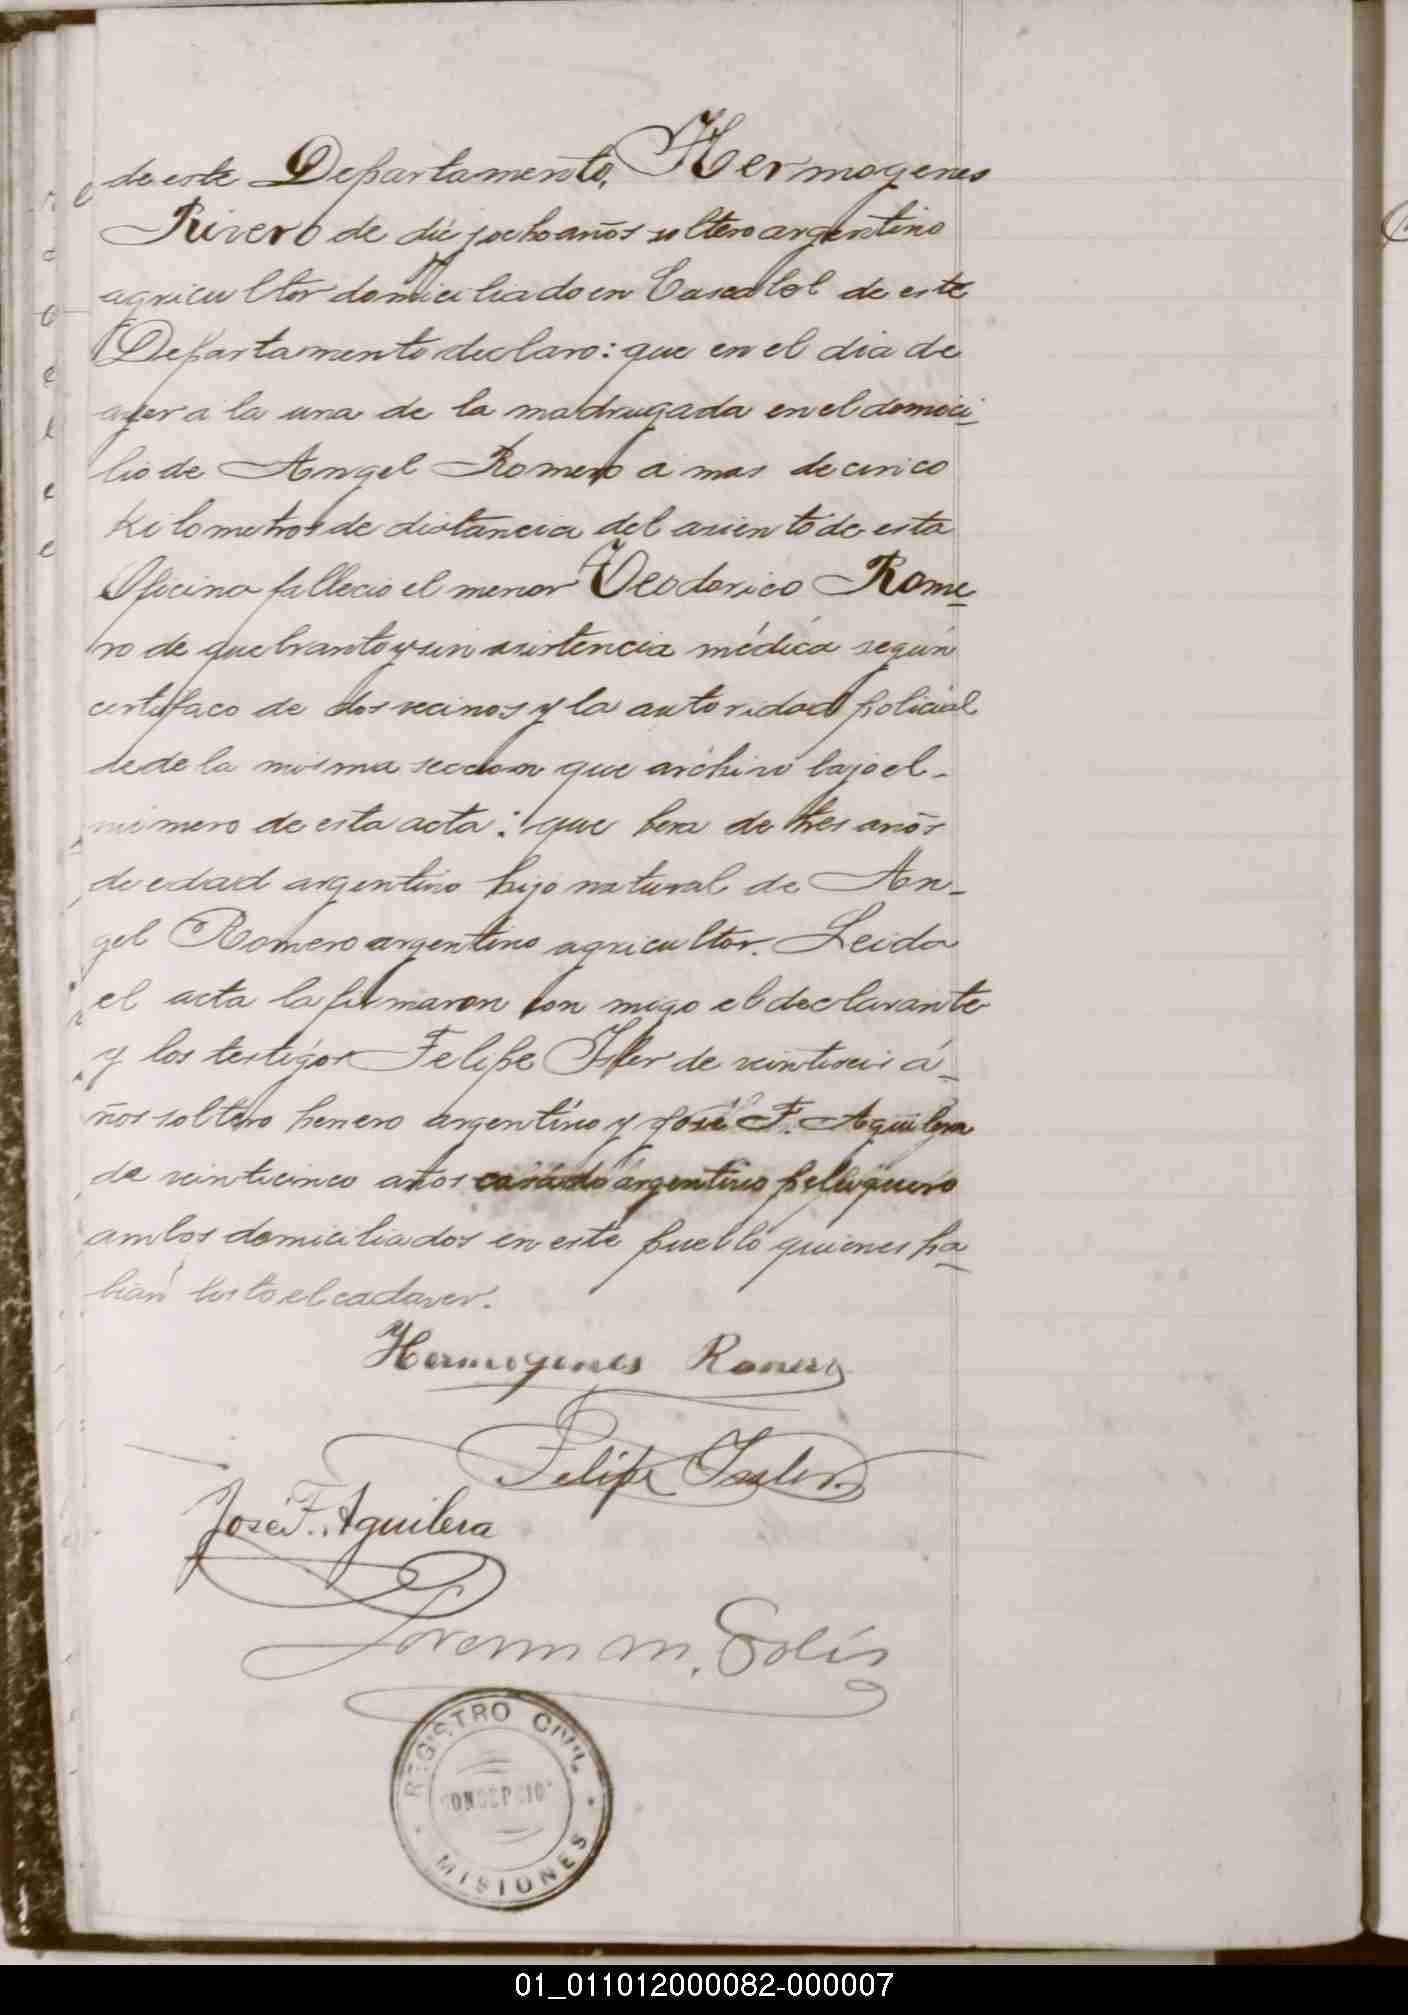 de este Departamento, Hermogenes
Rivero de dié jocho años soltero argentino
agricultor domiciliado en Cascalol de este
Departamento declaro: que en el dia de
ayer a la una de la madrugada en el domici-
lio de Angel Romero a mas de cinco
Kilometros de distancia del asiento de esta
Oficina fallecio el menor Teodorico Rome-
ro de quebranto y sin asistencia médica según
certifaco de dos vecinos y la autoridad policial
de de la misma seccion que archivo bajo el-
número de esta acta: que hera de tres años
de edad argentino hijo natural de An-
gel Romero argentino agricultor. Leida
el acta la firmaron con migo el declarante
y los testigos Felipe Isler de veintiseis á-
ños soltero herrero argentino y José F. Aguilera
de veinticinco años casado argentino peluquero
ambos domiciliados en este pueblo quienes ha-
bian bisto el cadaver.
Hermogenes Romero
Felipe Issler
José F. Aguilera
M. Solís
REGISTRO CIVIL
CONCEPCION
MISIONES
01_011012000082-000007